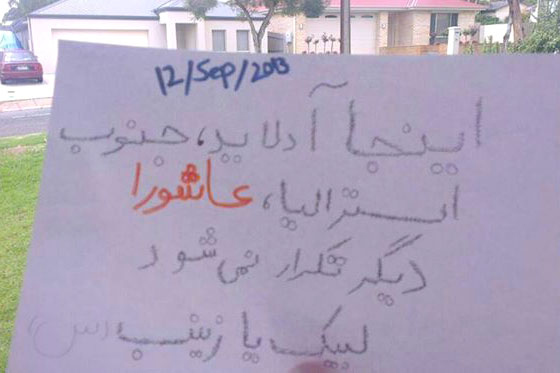 12/Sep/2013
اینجا آدلاید، جنوب
استرالیا، عاشورا
دیگر تکرار نمی شود
لبیک یا زینب (س)